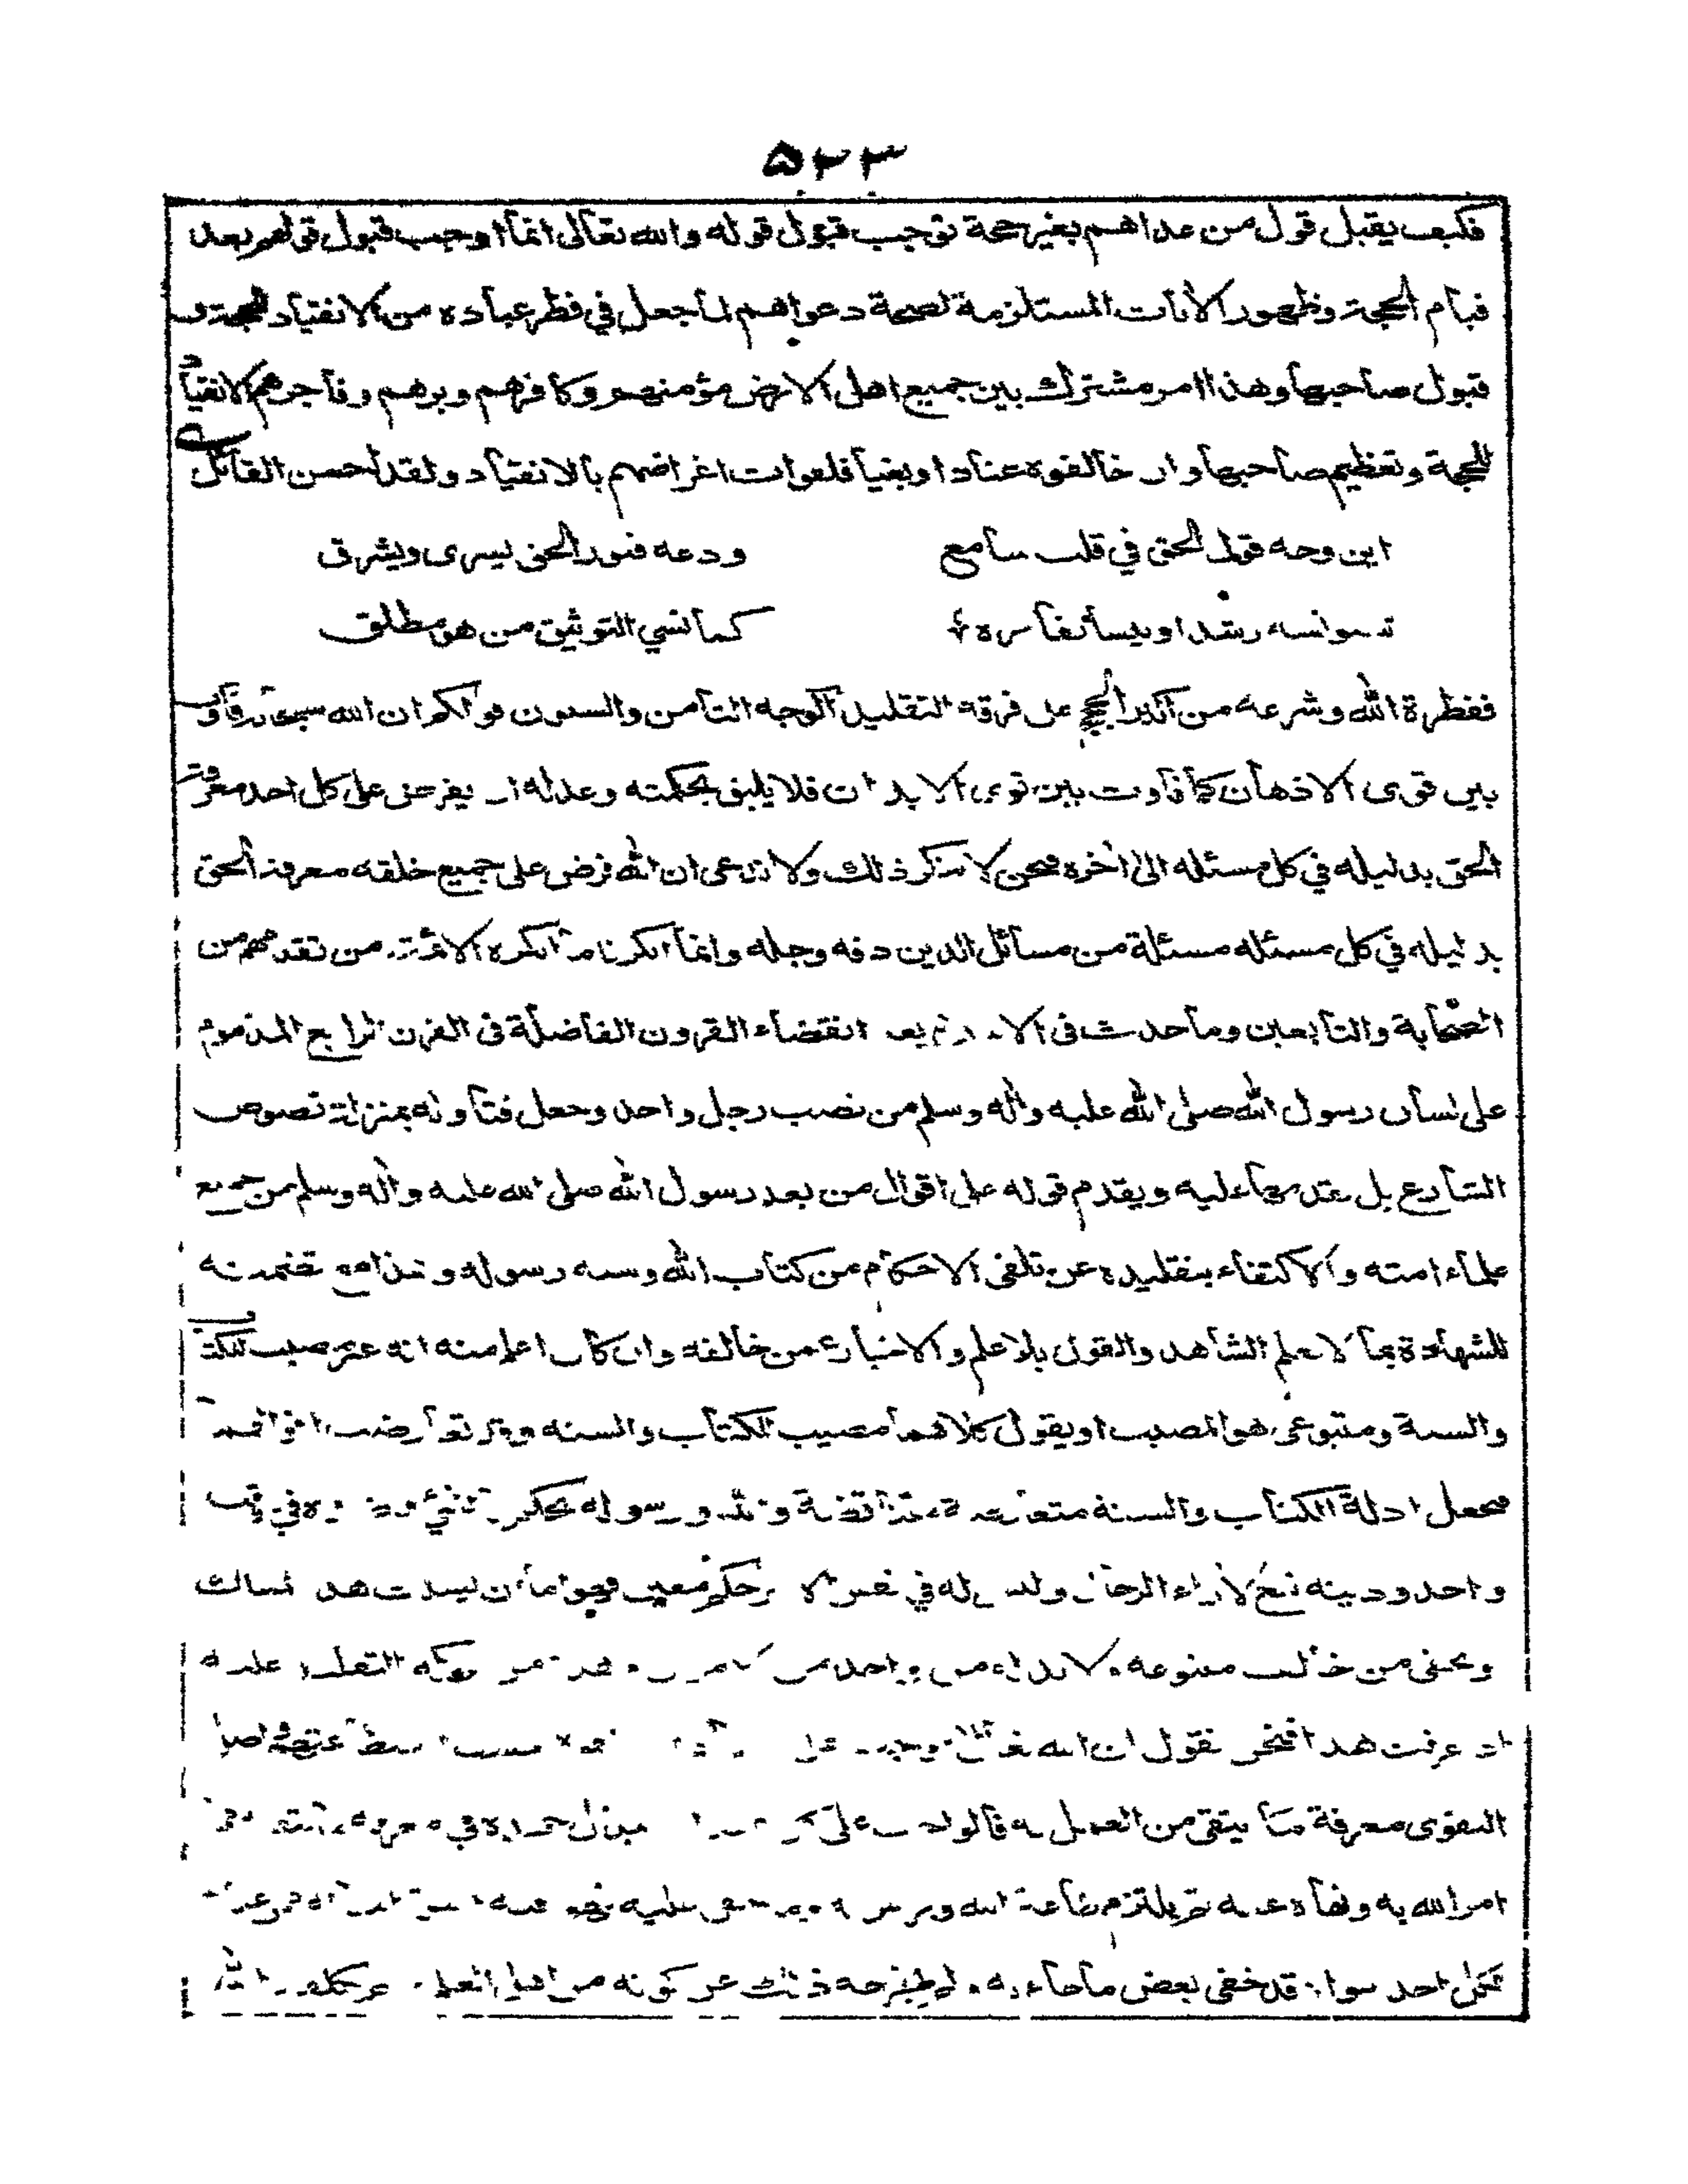 ۵۲۳
فكيف يقبل قول من عداهم بغير حجة توجب قبول قوله والله تعالى انما اوجب قبول قولهم بعد
قيام الحجة وظهور الآيات المستلزمة لصحة دعواهم لما جعل في فطر عباده من الانقياد للحجة و
قبول صاحبها وهذا امر مشترك بين جميع اهل الارض مؤمنهم وكافرهم وبرهم وفاجرهم الانقياد
للحجة وتعظيم صاحبها وان خالفوه عنادا وبغيا فلفوات اغراضهم بالانقياد ولقد احسن القائل
ابن وجه قول الحق في قلب سامع ودعه فنور الحق يسرى ويشرق
رشدا وينسا نفاره كما نسي التوثيق من هو مطلق
ففطرة الله وشرعه من اكبر الحجج على فرقة التقليد الوجه الثامن والستون قولكم ان الله سبحانه فاوت
بين قوى الاذهان كما فاوت بين قوى الابدان فلا يليق بحكمته وعدله ان يفرض على كل احد معرفة
الحق بدليله في كل مسئله الى اخره فنحن لا ننكر ذلك ولا ندعى ان الله فرض على جميع خلقه معرفة الحق
بدليله في كل مسئله مسئلة من مسائل الدين دقه وجله وانما انكرنا ما انكره الائمة من تقدمهم من
الصحابة والتابعين وما حدث فى الاسلام بعد انقضاء القرون الفاضلة فى القرن الرابع المذموم
على لسان رسول الله صلى الله عليه واله وسلم من نصب رجل واحد وجعل فتاوله بمنزلة نصوص
الشارع بل يقدمها عليه ويقدم قوله على اقوال من بعد رسول الله صلى الله عليه واله وسلم من جميع
علماء امته والاكتفاء بتقليده عن تلقى الاحكام من كتاب الله وسنه رسوله وهذا مع تضمنه
للشهادة بما لا يعلم الشاهد والقول بلا علم والاخبار عمن خالفه وان كان اعلم منه انه غير مصيب للكتاب
والسنة ومتبوعى هو المصيب او يقول كلاهما مصيب للكتاب والسنه وقد تعارضت اقوالهما
فيجعل ادلة الكتاب والسنة متعارضة متناقضة والله ورسوله يحكم في وقت
واحد ودينه تبع لآراء الرجال وليس له في نفس الامر حكم معين فهو اما ان يسلك هذا المسلك
ويخطى من خالف متبوعه ولا بد له من واحد من الامرين من بركة التقليد عليه
اذ عرفت هذا فنحن نقول ان الله تعالى اوجب على
التقوى معرفة ما يتقى من العمل به فالواجب على كل عبد ان يبذل جهده في معرفة ما يتقيه مما
امر الله به ونهاه عنه ثم يلتزم طاعة الله ورسوله
فكل احد سواه قد خفى بعض ما جاء به ولم يخرجه ذلك عن كونه من اهل العلم